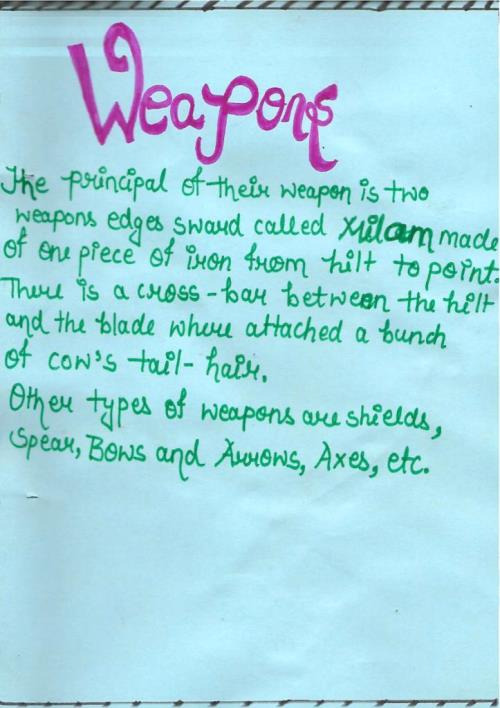 Weapons
The principal of their weapon is two
weapons edges sward called Xulam made
of one piece of iron from hilt to point.
There is a cross-bar between the hilt
and the blade where attached a bunch
of cow's tail-hair.
Other types of weapons are shields,
Spear, Bows and Arrows, Axes, etc.